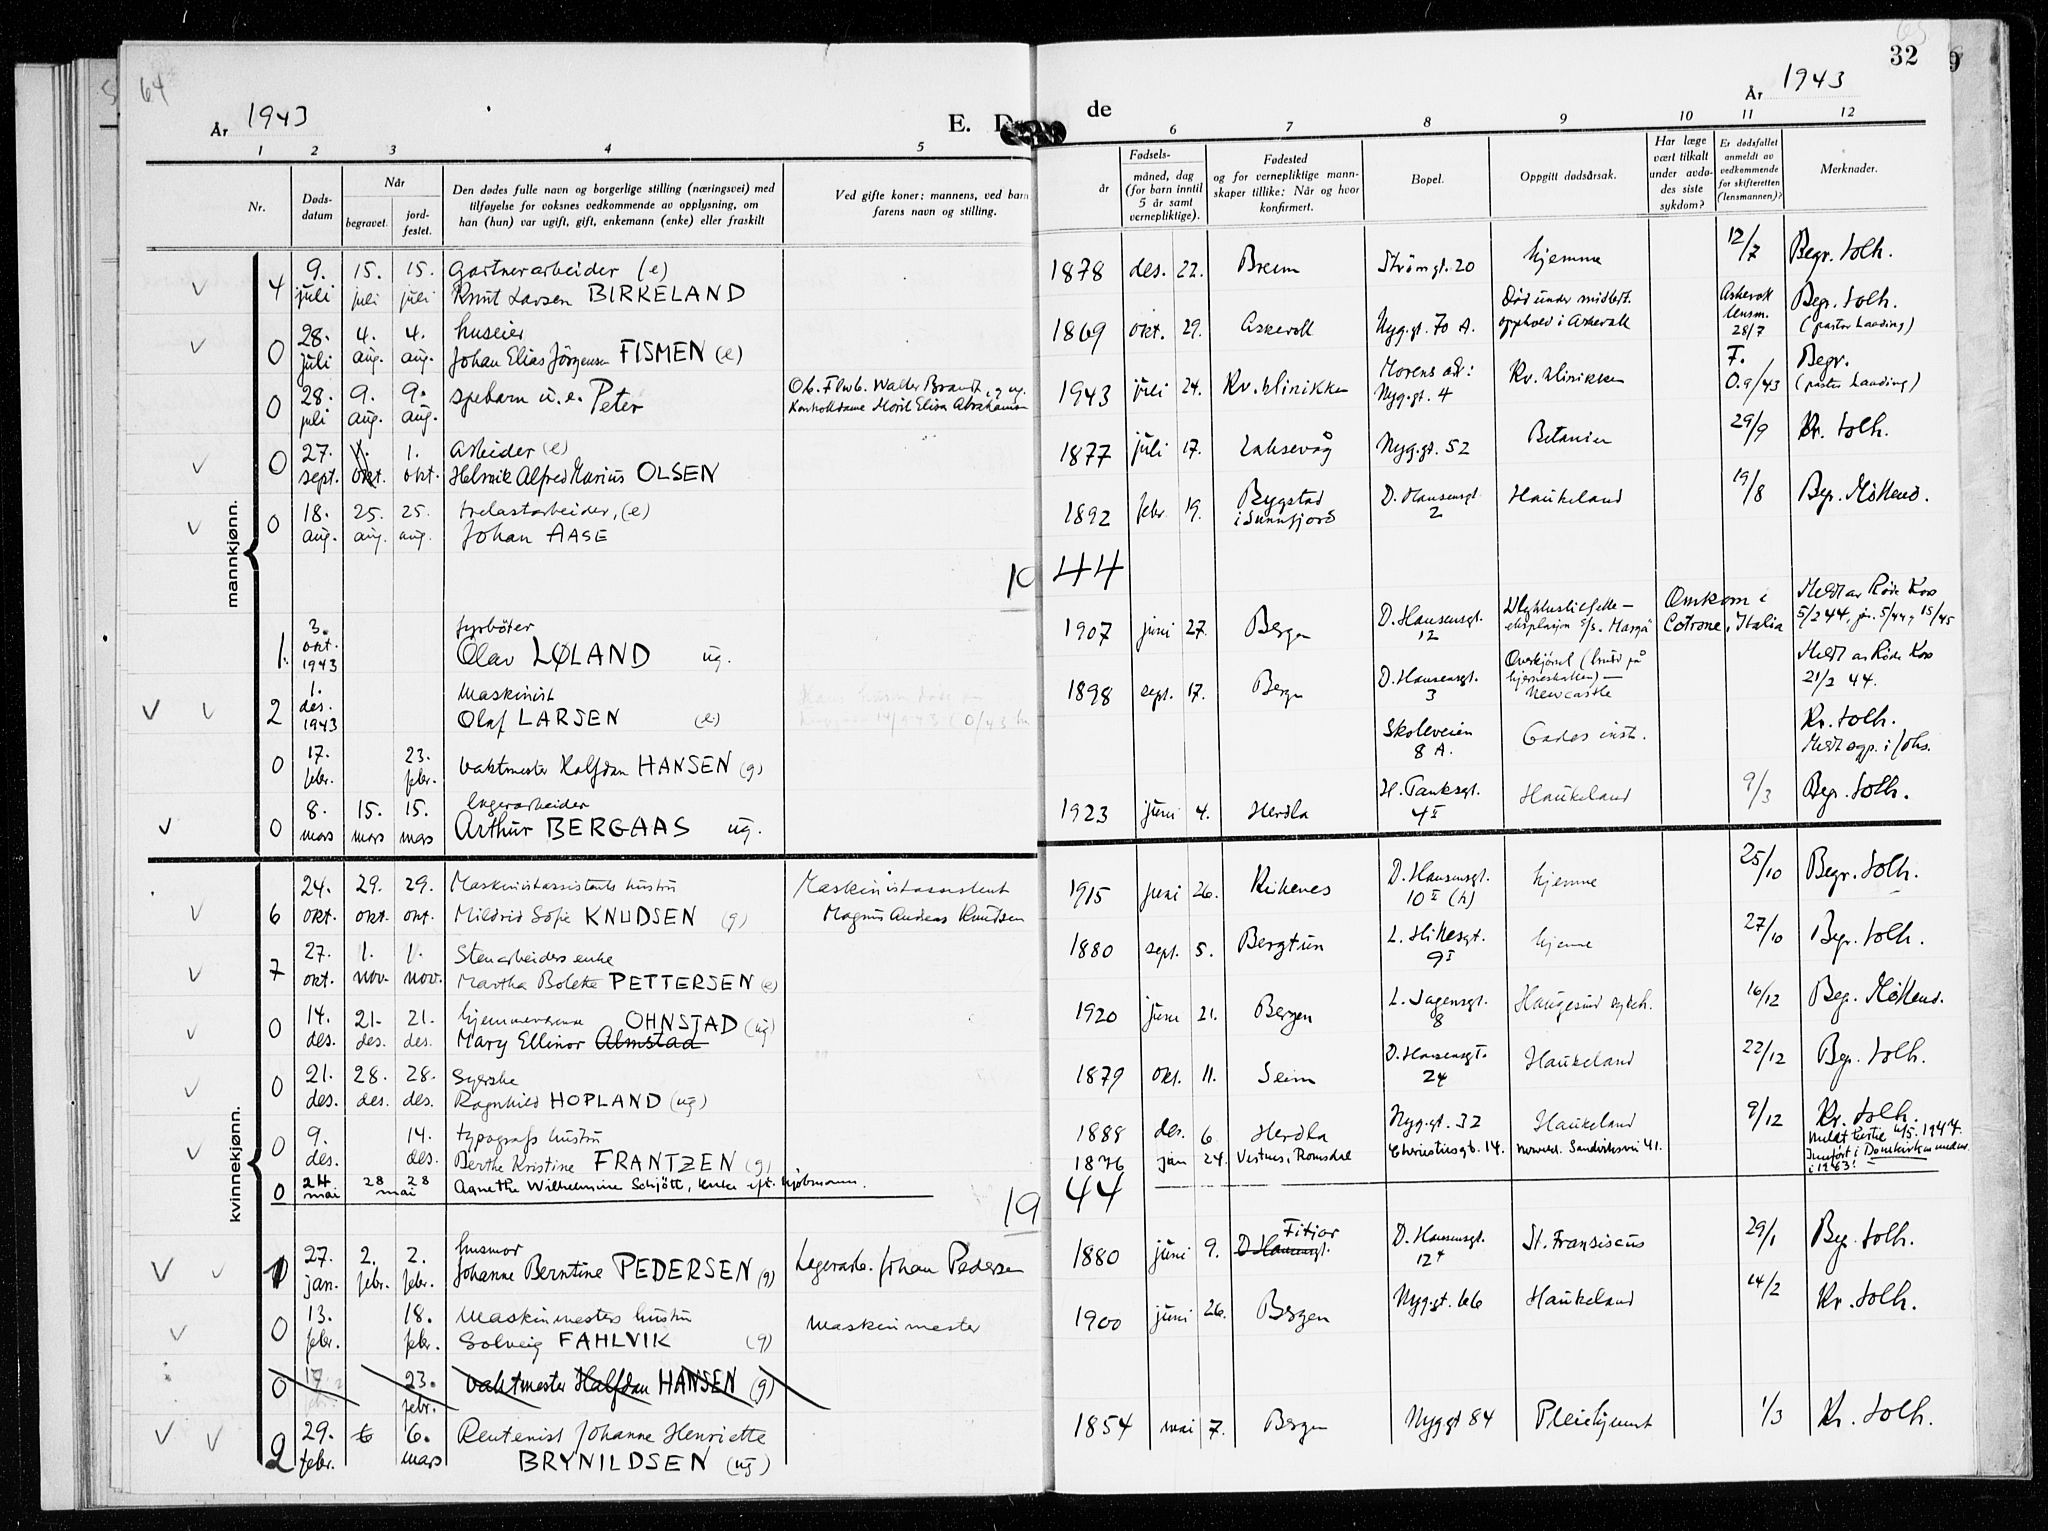 64
År 1943
E. Dø de
65
32
9
År 1943
1 2 3 4 5 6 7 8 9 10 11 12
Nr.
Døds-
datum
Når
begravet.
jord-
festet.
Den dødes fulle navn og borgerlige stilling (næringsvei) med
tilføyelse for voksnes vedkommende av opplysning, om
han (hun) var ugift, gift, enkemann (enke) eller fraskilt
Ved gifte koner: mannens, ved barn
farens navn og stilling.
Fødsels-
år
måned, dag
(for barn inntil
5 år samt
vernepliktige).
Fødested
og for vernepliktige mann-
skaper tillike: Når og hvor
konfirmert.
Bopel.
Oppgitt dødsårsak.
Har læge
vært tilkalt
under avdø-
des siste
sykdom?
Er dødsfallet
anmeldt av
vedkommende
for skifteretten
(lensmannen)?
Merknader.
mannkjønn.
4 9. juli 15. juli 15. juli Gartnerarbeider (e)
Knut Larsen BIRKELAND
1878 des. 22. Breim Strömgt. 20 hjemme 12/7 Begr. Solh.
0 28. juli 4. aug. 4. aug. huseier
Johan Elias Jörgensen FISMEN (e)
1869 okt. 29. Askevoll Nyg.gt. 70 A. Död under midlert.
opphold i Askevoll
Askevoll
lensm.
28/7
Begr. Solh.
(pastor Laading)
0 28. juli 9. aug. 9. aug. spebarn u.e. Peter
Ob. Flwb. Walter Brandt, og ug.
Kontordame Moril Elisa Abrahamsen
1943 juli 24. Kv. klinikken Morens adr:
Nyg.gt. 4
Kv. klinikken
F.
O. 9/43
Begr.
(pastor Laading)
0 27. sept. 1. okt. 1. okt. Arbeider (e)
Helmik Alfred Marius OLSEN
1877 juli 17. Laksevåg Nyg.gt. 52 Betanien 29/9 Kr. Solh.
0 18. aug. 25. aug. 25. aug. trelastarbeider, (e)
Johan AASE
1892 febr. 19. Bygstad
i Sunnfjord
D. Hansensgt.
2
Haukeland 19/8 Begr. Möllend.
19 44
1. 3. okt. 1943 fyrböter
Olav LØLAND ug.
1907 juni 27. Bergen D. Hansensgt.
12
Ulykkestilfelle –
eksplosjon s/s. Margå
Omkom i
Cotrone, Italia
Meldt av Röde Kors
5/2 44, jr. 5/44, 15/45
2 1. des. 1943 Maskinist
Olaf LARSEN (e)
1898 sept. 17. Bergen D. Hansensgt.
3
Overkjörsel (brudd på
hjerneskallen) –
Newcastle
Meldt av Röde Kors
21/2 44.
0 17. febr. 23. febr. Vaktmester Halfdan HANSEN (g)
Skoleveien
8 A.
Gades inst.
Kr. Solh.
Meldt opp. i Johs.
0 8. mars 15. mars 15. mars lagerarbeider
Arthur BERGAAS ug.
1923 juni 4. Herdla H. Tanksgt.
4 I
Haukeland 9/3 Begr. Solh.
kvinnekjønn.
6 24. okt. 29. okt. 29. okt. Maskinistassistents hustru
Mildrid Sofie KNUDSEN (g)
Maskinistassistent
Magnus Andreas Knudsen
1915 juni 26. Kikenes D. Hansensgt.
10 I (h)
hjemme 25/10 Begr. Solh.
7 27. okt. 1. nov. 1. nov. Stenarbeiders enke
Martha Bolette PETTERSEN (e)
1880 sept. 5. Bergtun L. Hillesgt.
9 I
hjemme 27/10 Begr. Solh.
0 14. des. 21. des. 21. des. hjemmeværende OHNSTAD (ug)
Mary Ellinor Almstad
1920 juni 21. Bergen L. Sagensgt.
8
Haugesund sykeh. 16/12 Beg. Möllend.
0 21. des. 28. des. 28. des. Syerske
Ragnhild HOPLAND (ug)
1879 okt. 11. Seim D. Hansensgt.
24
Haukeland 22/12 Begr. Solh.
0 9. des. 14. des. typografs hustru
Berthe Kristine FRANTZEN (g)
1888 des. 6 Herdla Nyg.gt. 32 Haukeland 9/12 Kr. Solh.
0 24 mai 28 mai 28 Agnethe Wilhelmine Schjött, enke eft. kjöbmann.
1876 jan 24. Vestnes, Romsdal Christiesgt. 14. Sandviksvei 41.
1944.
Innført i Domkirken
i 1943!
19 44
1 27. jan. 2. febr. 2. febr. husmor
Johanne Berntine PEDERSEN (g)
Lagerarb. Johan Pedersen
1880 juni 9. D. Hansensgt. Fitjar D. Hansensgt.
12 4
St. Fransiscus 29/1 Beg. Solh.
0 13. febr. 18. febr. Maskinmesters hustru
Solveig FAHLVIK (g)
Maskinmester
1900 juni 26. Bergen Nyg.gt. 66 Haukeland 14/2 Kr. Solh.
0 17. 23. febr. Vaktmester Halfdan HANSEN (g)
2 29. febr. 6 6. mars Rentenist Johanne Henriette
BRYNILDSEN (ug)
1854 mai 7. Bergen Nyggt 84 Pleiehjemmet 1/3 Kr. Solh.